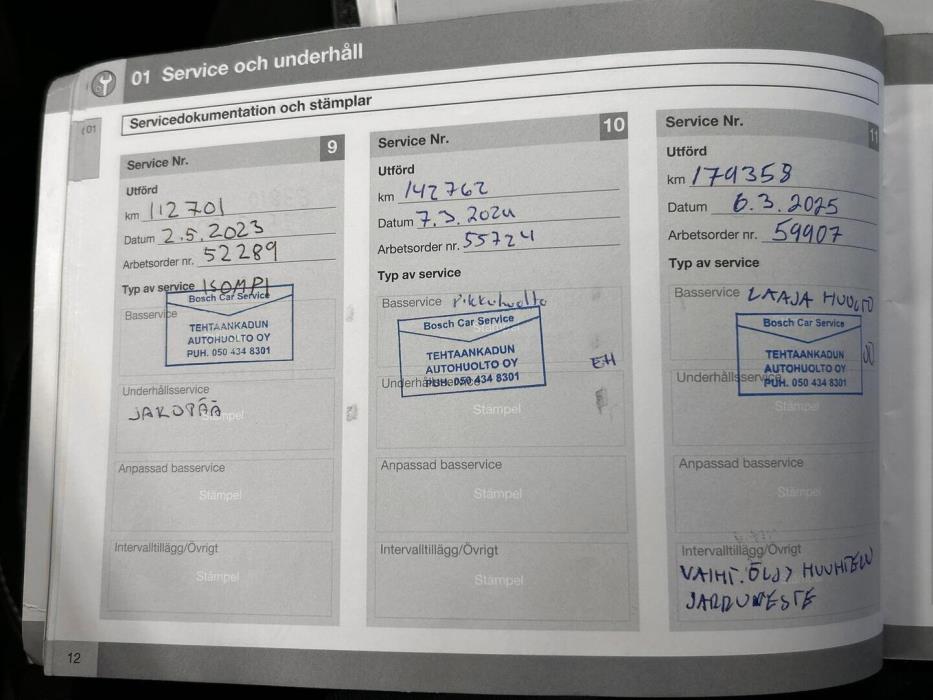 01 Service och underhåll
Servicedokumentation och stämplar
01
Service Nr. 9
Utförd
km 112701
Datum 2.5.2023
Arbetsorder nr. 52289
Typ av service ISOMPI
Basservice
Bosch Car Service
TEHTAANKADUN
AUTOHUOLTO OY
PUH. 050 434 8301
Underhållsservice
JAKOPÄÄ
Stämpel
Anpassad basservice
Stämpel
Intervalltillägg/Övrigt
Stämpel
Service Nr. 10
Utförd
km 142762
Datum 7.3.2024
Arbetsorder nr. 55724
Typ av service
Basservice Pikkuhuolto
Stämpel
Bosch Car Service
TEHTAANKADUN
AUTOHUOLTO OY
PUH. 050 434 8301
EH
Underhållsservice
Stämpel
Anpassad basservice
Stämpel
Intervalltillägg/Övrigt
Stämpel
Service Nr. 11
Utförd
km 179358
Datum 6.3.2025
Arbetsorder nr. 59907
Typ av service
Basservice LAAJA HUOLTO
Bosch Car Service
TEHTAANKADUN
AUTOHUOLTO OY
PUH. 050 434 8301
Underhållsservice
Stämpel
Anpassad basservice
Stämpel
Intervalltillägg/Övrigt
VAIHT. ÖLJY HUUHTELU
JARRUNESTE
12